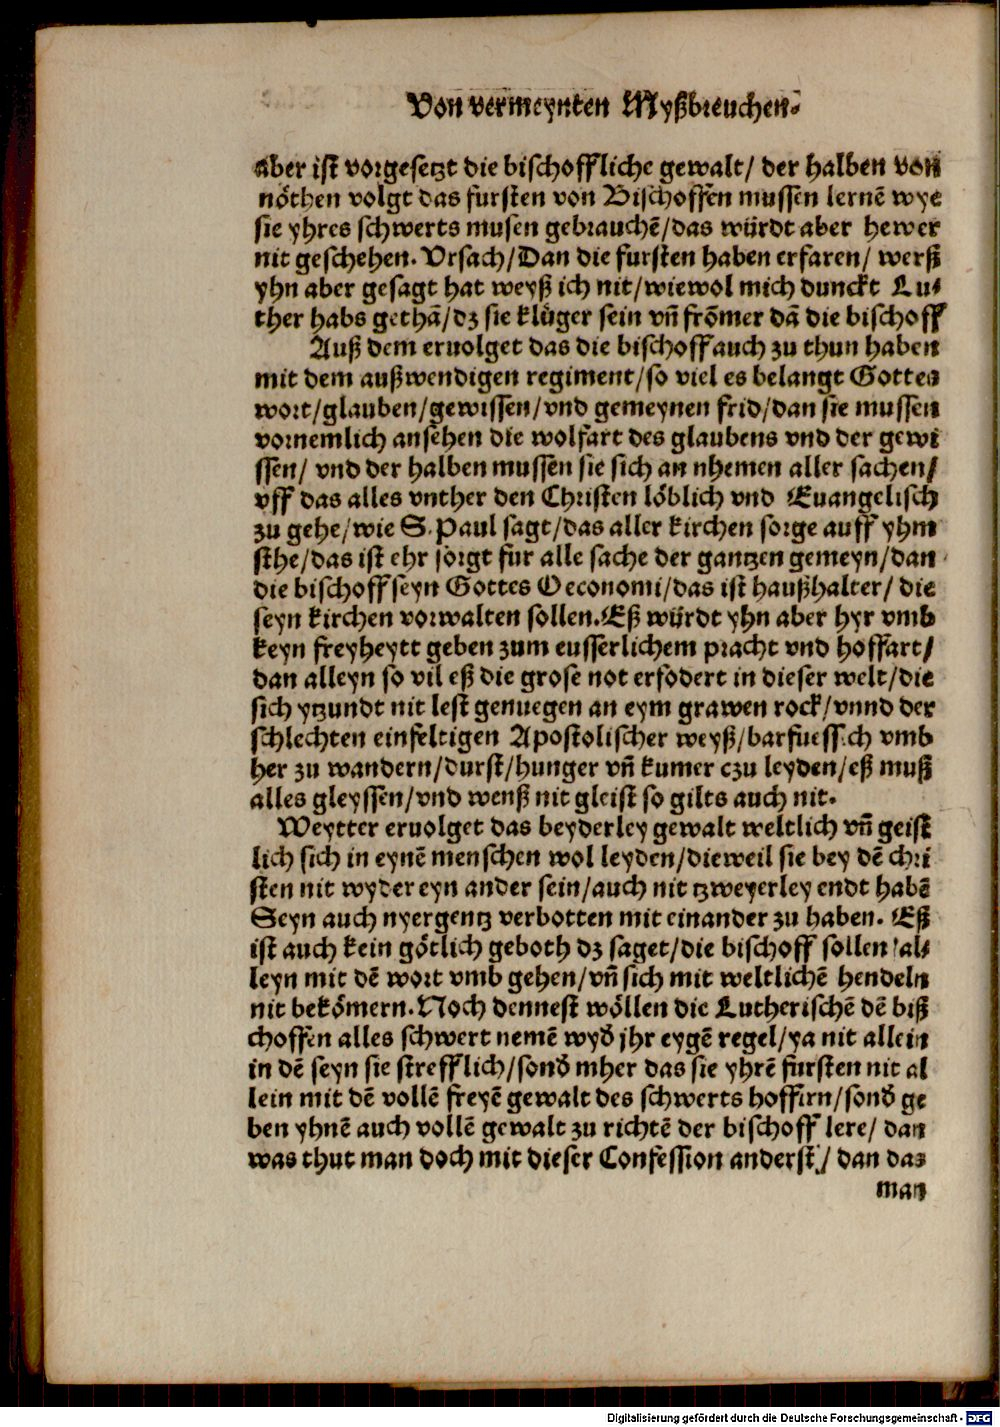 Von vermeynten Myßbreuchen.
aber ist vorgesetzt die bischoffliche gewalt/ der halben von
nöthen volgt das fursten von Bischoffen mussen lernē wye
sie yhres schwerts musen gebrauchē/das würdt aber hewer
nit geschehen. Vrsach/Dan die fursten haben erfaren/ werß
yhn aber gesagt hat weyß ich nit/wiewol mich dunckt Lu⸗
ther habs gethā/dz sie klůger sein vn̄ frōmer dā die bischoff
Auß dem eruolget das die bischoff auch zu thun haben
mit dem außwendigen regiment/so viel es belangt Gottes
wort/glauben/gewissen/vnd gemeynen frid/dan sie mussen
vornemlich ansehen die wolfart des glaubens vnd der gewi
ssen/ vnd der halben mussen sie sich an nhemen aller sachen/
vff das alles vnther den Christen löblich vnd Euangelisch
zu gehe/wie S. Paul sagt/das aller kirchen sorge auff yhm
sthe/das ist ehr sorgt fur alle sache der gantzen gemeyn/dan
die bischoff seyn Gottes Oeconomi/das ist haußhalter/ die
seyn kirchen vorwalten sollen. Eß würdt yhn aber hyr vmb
keyn freyheytt geben zum eusserlichem pracht vnd hoffart/
dan alleyn so vil eß die grose not erfodert in dieser welt/die
sich ytzundt nit lest genuegen an eym grawen rock/vnnd der
schlechten einfeltigen Apostolischer weyß/barfuessich vmb
her zu wandern/durst/hunger vn̄ kumer czu leyden/eß muß
alles gleyssen/vnd wenß nit gleist so gilts auch nit.
Weytter eruolget das beyderley gewalt weltlich vn̄ geist
lich sich in eynē menschen wol leyden/dieweil sie bey dē chri
sten nit wyder eyn ander sein/auch nit tzweyerley endt habē
Seyn auch nyergentz verbotten mit einander zu haben. Eß
ist auch kein götlich geboth dz saget/die bischoff sollen al⸗
leyn mit dē wort vmb gehen/vn̄ sich mit weltlichē hendeln
nit bekömern. Noch dennest wöllen die Lutherischē dē biß
choffen alles schwert nemē wyd̄ jhr eygē regel/ya nit allein
in dē seyn sie strefflich/sond̄ mher das sie yhrē fursten nit al
lein mit dē vollē freyē gewalt des schwerts hoffirn/sond̄ ge
ben yhnē auch vollē gewalt zu richtē der bischoff lere/ dan
was thut man doch mit dieser Confession anderst/ dan das
man
Digitalisierung gefördert durch die Deutsche Forschungsgemeinschaft - DFG